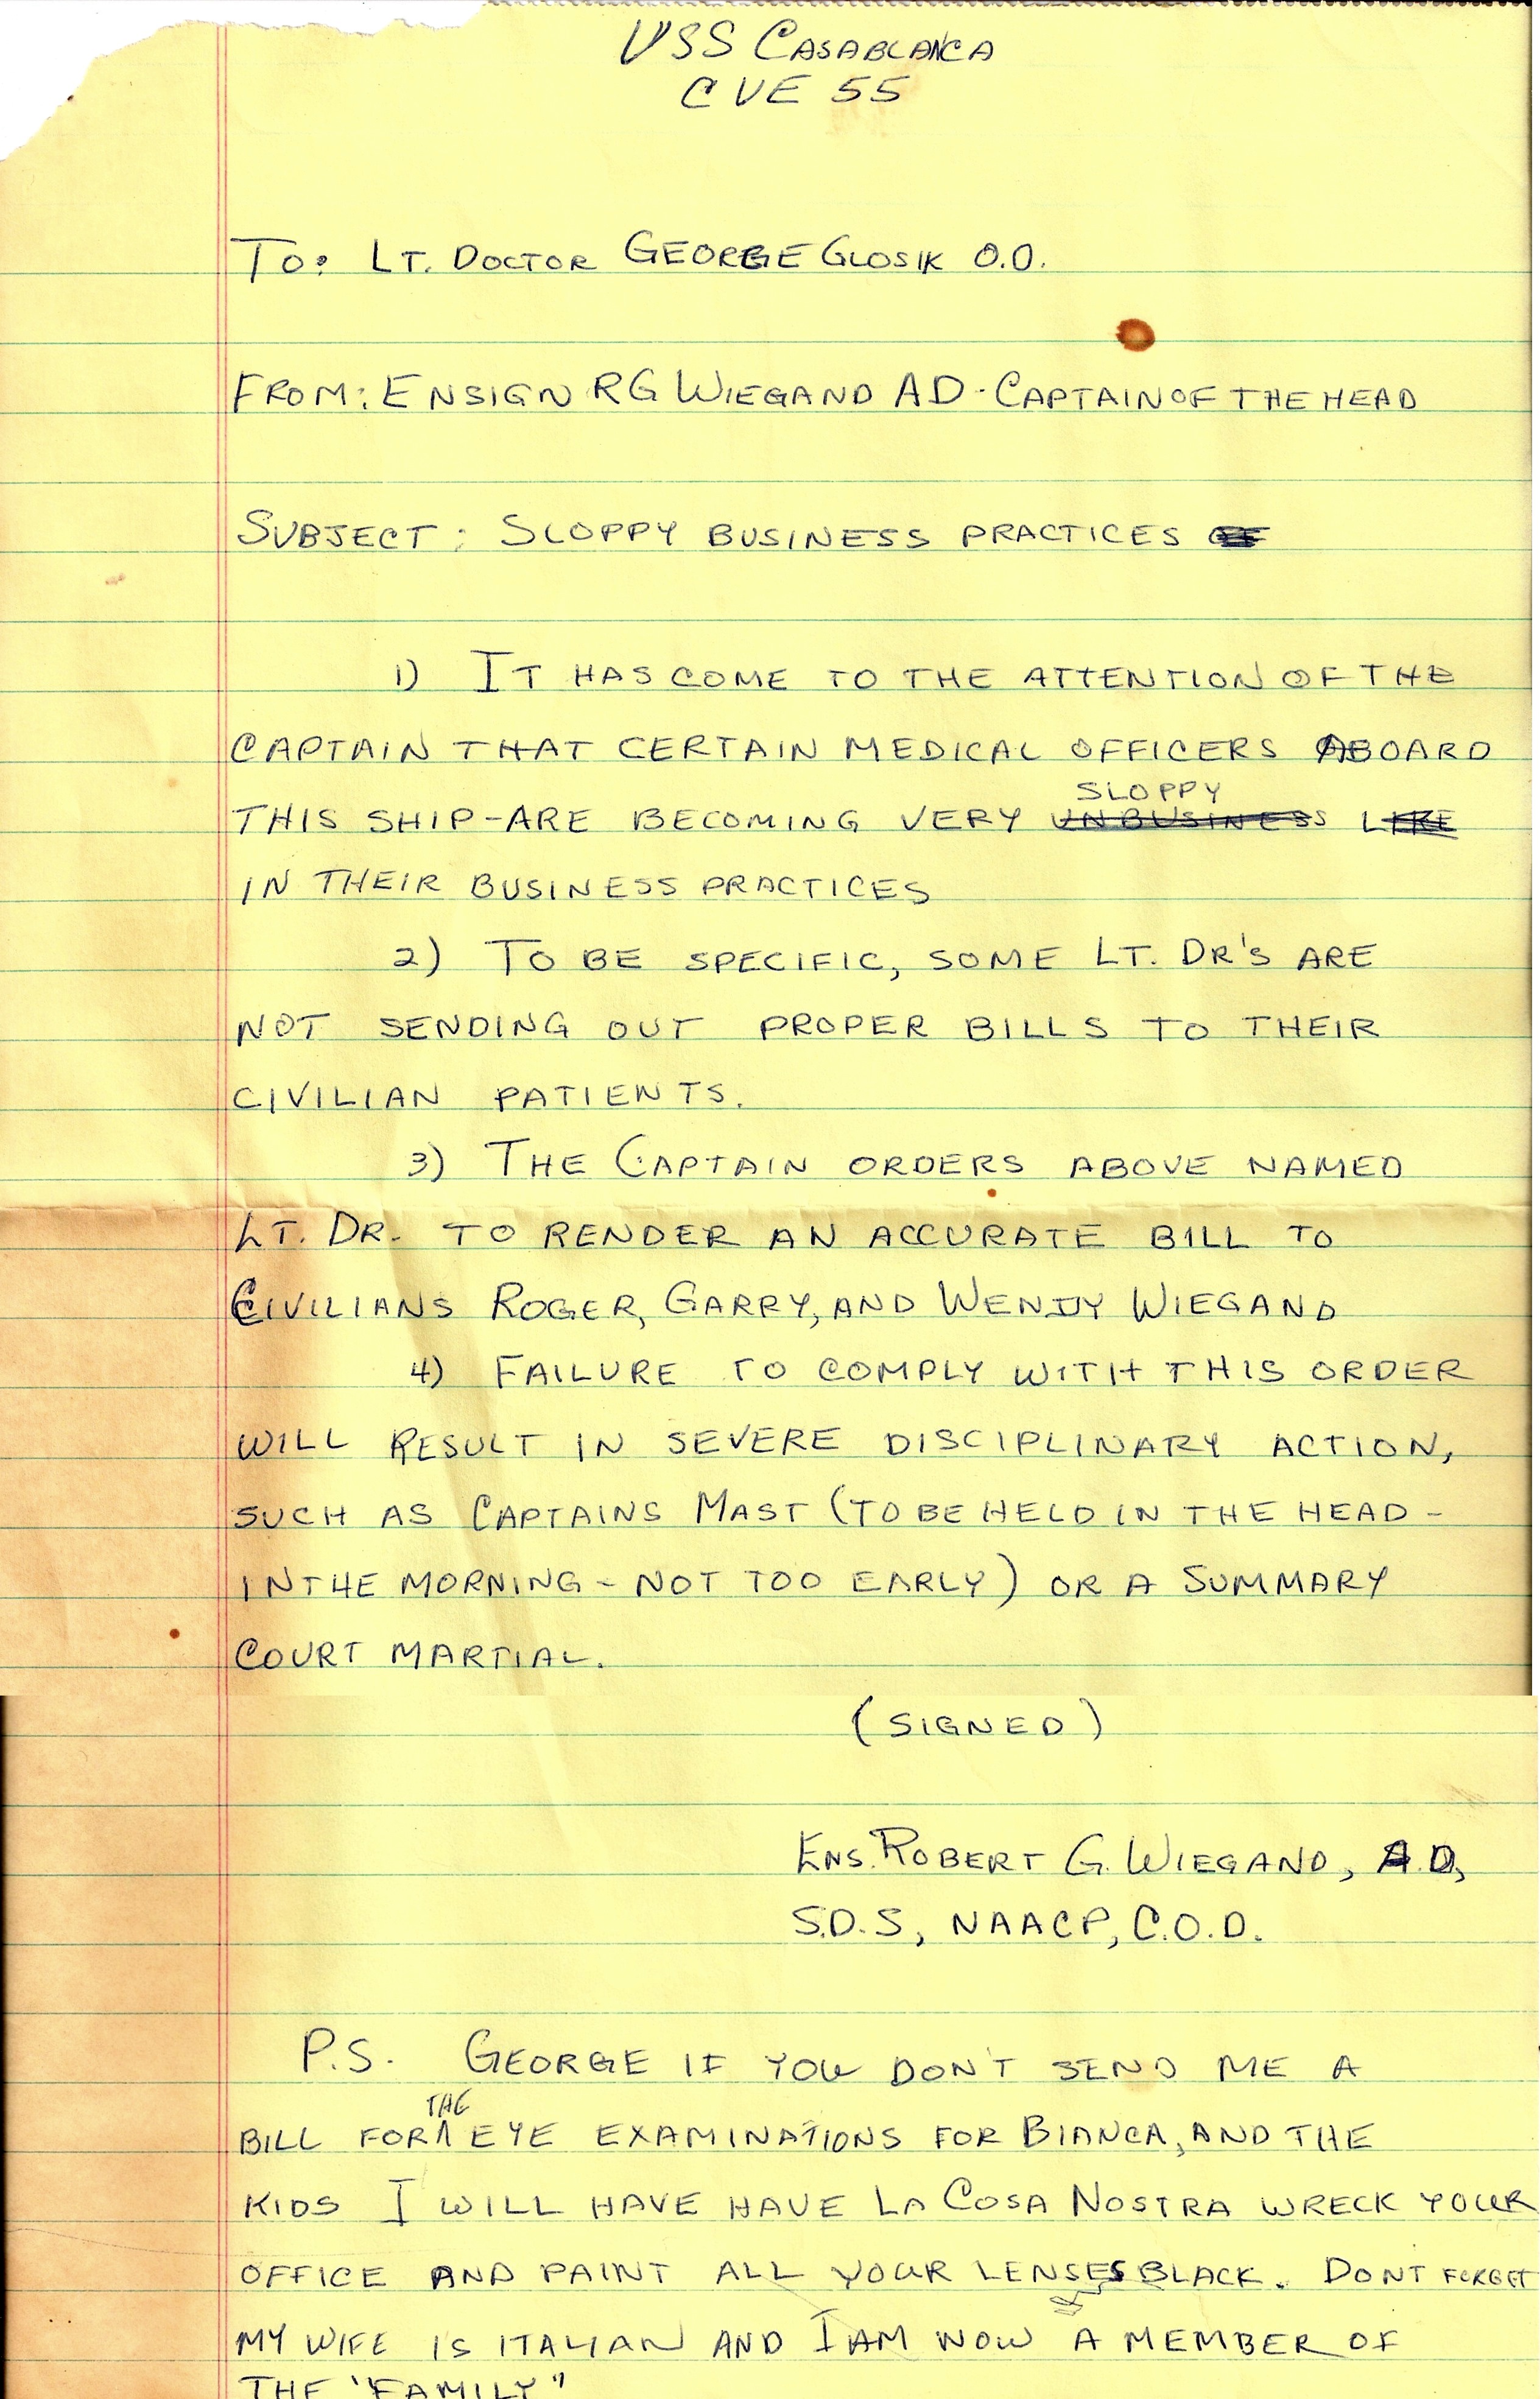 USS CASABLANCA
CVE 55
TO: LT. DOCTOR GEORGE GLOSIK O.D.
FROM: ENSIGN RG WIEGAND AD - CAPTAIN OF THE HEAD
SUBJECT: SLOPPY BUSINESS PRACTICES
1) IT HAS COME TO THE ATTENTION OF THE
CAPTAIN THAT CERTAIN MEDICAL OFFICERS ABOARD
SLOPPY
THIS SHIP-ARE BECOMING VERY UNBUSINESS LIKE
IN THEIR BUSINESS PRACTICES
2) TO BE SPECIFIC, SOME LT. DR'S ARE
NOT SENDING OUT PROPER BILLS TO THEIR
CIVILIAN PATIENTS.
3) THE CAPTAIN ORDERS ABOVE NAMED
LT. DR. TO RENDER AN ACCURATE BILL TO
CIVILIANS ROGER, GARRY, AND WENDY WIEGAND
4) FAILURE TO COMPLY WITH THIS ORDER
WILL RESULT IN SEVERE DISCIPLINARY ACTION,
SUCH AS CAPTAINS MAST (TO BE HELD IN THE HEAD -
IN THE MORNING - NOT TOO EARLY) OR A SUMMARY
COURT MARTIAL.
(SIGNED)
ENS. ROBERT G. WIEGAND, A.D,
S.D.S, NAACP, C.O.D.
P.S. GEORGE IF YOU DON'T SEND ME A
THE
BILL FOR ^ EYE EXAMINATIONS FOR BIANCA, AND THE
KIDS I WILL HAVE HAVE LA COSA NOSTRA WRECK YOUR
OFFICE AND PAINT ALL YOUR LENSES BLACK. DONT FORGET
MY WIFE IS ITALIAN AND I AM NOW A MEMBER OF
THE "FAMILY"